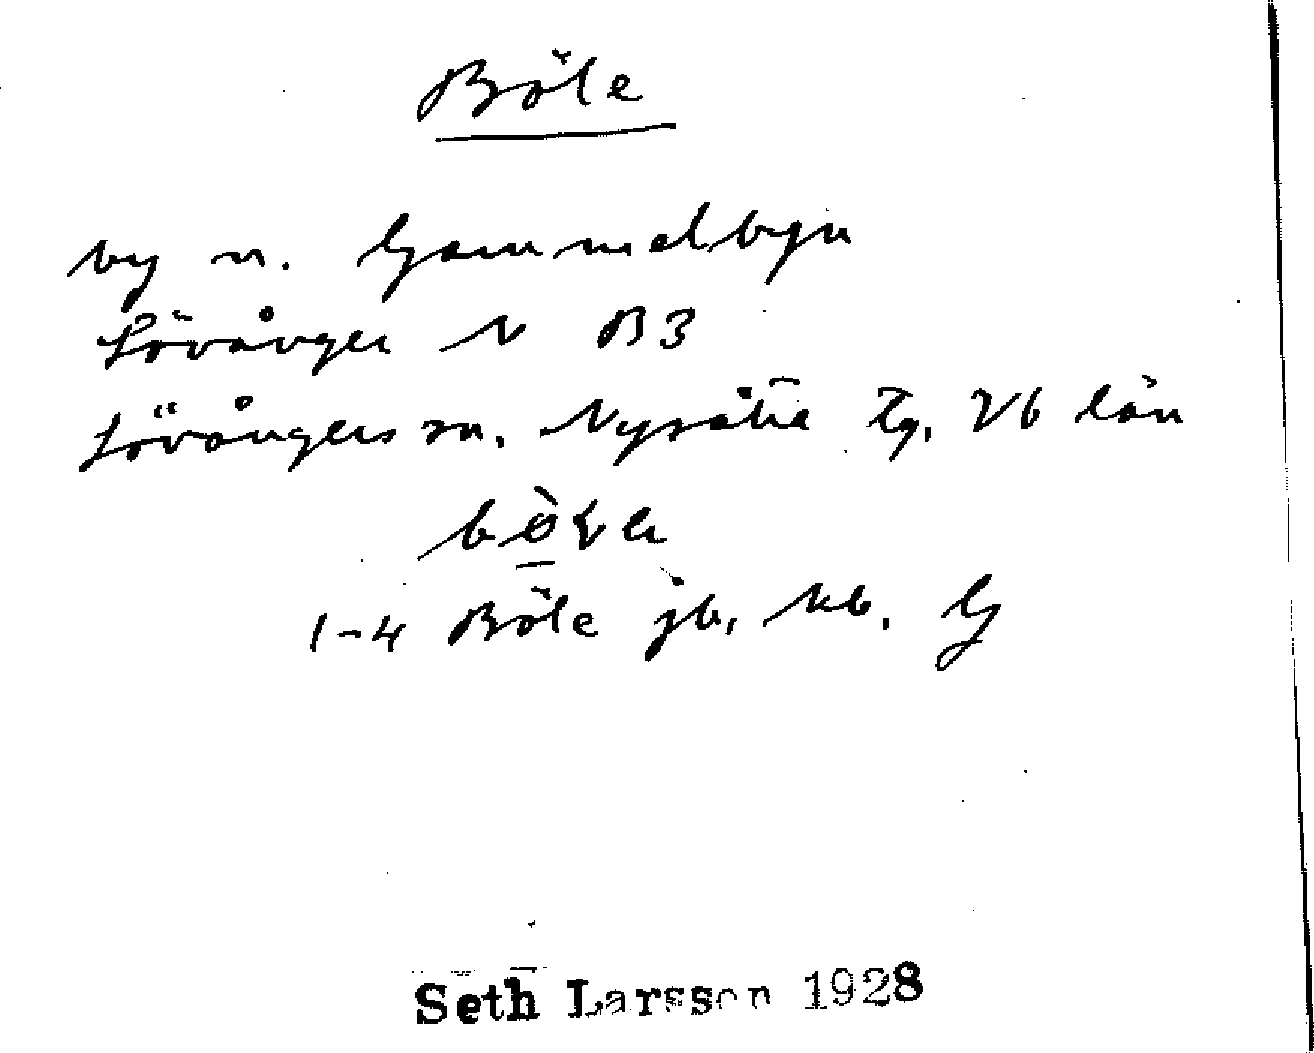 Böle
by n. Gammelbyn
Lövånger N B3
Lövångers sn. Nysätra tg. Vb län
1-4 Böle jb, kb. G
Seth Larsson 1928